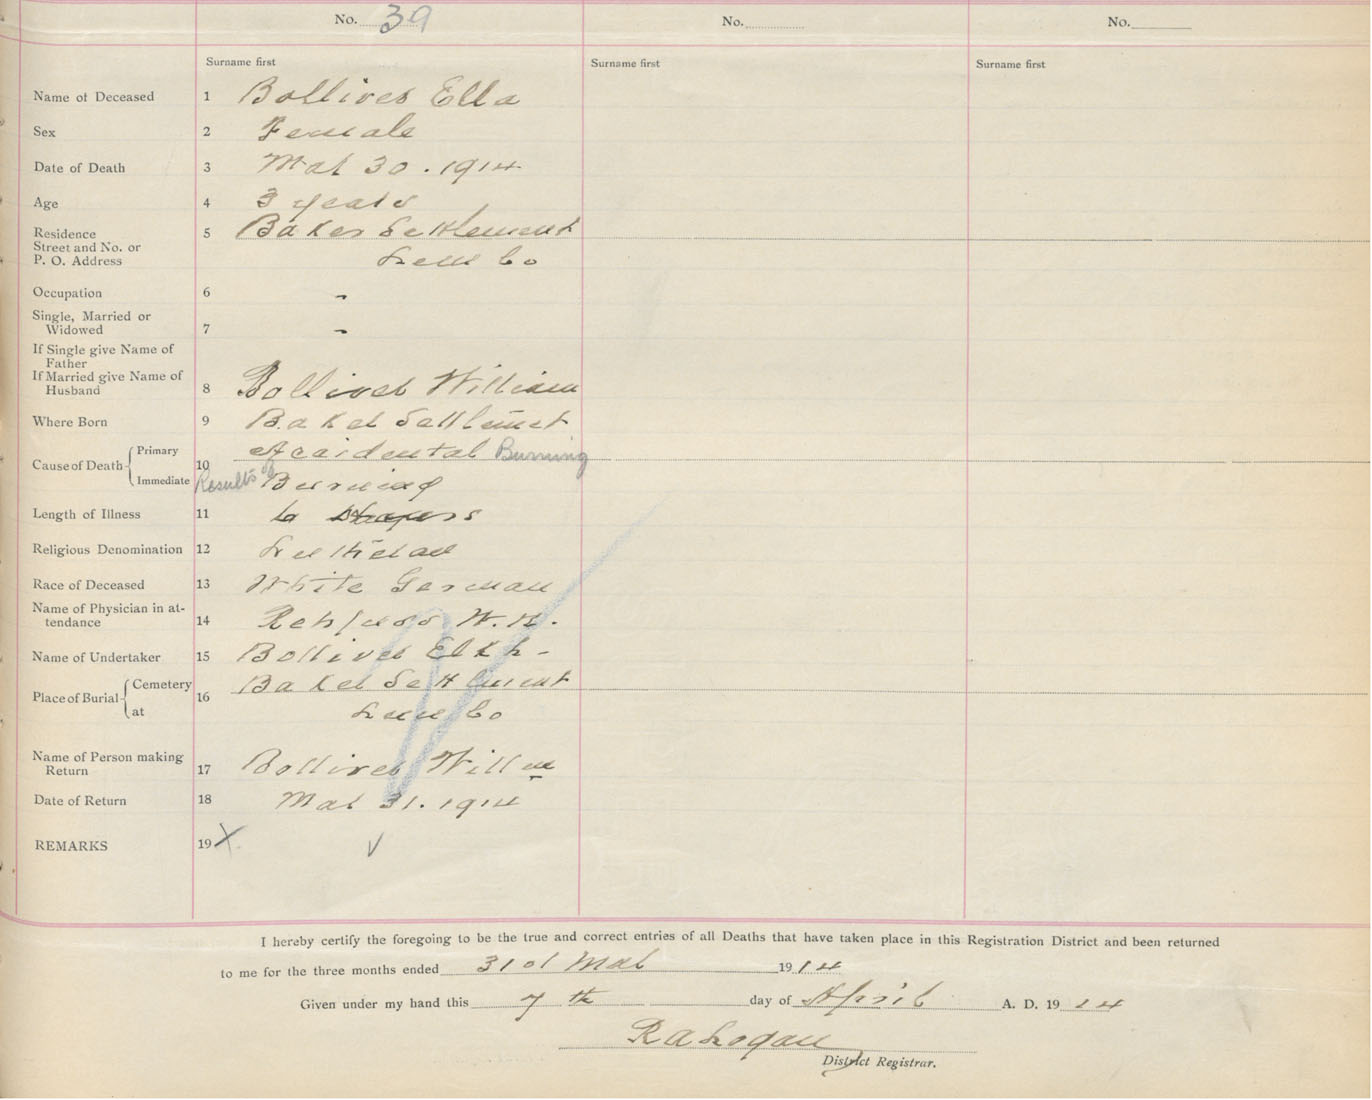 No. 39 No. No.
Surname first Surname first Surname first
Name of Deceased 1 Bolliver Ella
Sex 2 Female
Date of Death 3 Mar 30. 1914
Age 4 3 years
Residence 5 Baker Settlement
Street and No. or
P. O. Address Lun Co
Occupation 6 -
Single, Married or
Widowed 7 -
If Single give Name of
Father
If Married give Name of
Husband 8 Bolliver William
Where Born 9 Baker Settlement
Cause of Death { Primary Accidental Burning
10
Immediate Results of Burning
Length of Illness 11 6
Religious Denomination 12 Lutheran
Race of Deceased 13 White German
Name of Physician in at-
tendance 14 Rehfuss W. N.
Name of Undertaker 15 Bolliver
Place of Burial { Cemetery 16 Baker Settlement
at Lun Co
Name of Person making
Return 17 Bolliver Willm
Date of Return 18 Mar 31. 1914
REMARKS 19 X
I hereby certify the foregoing to be the true and correct entries of all Deaths that have taken place in this Registration District and been returned
to me for the three months ended 31st Mar 1914
Given under my hand this 7th day of April A. D. 1914
R A Logan
District Registrar.